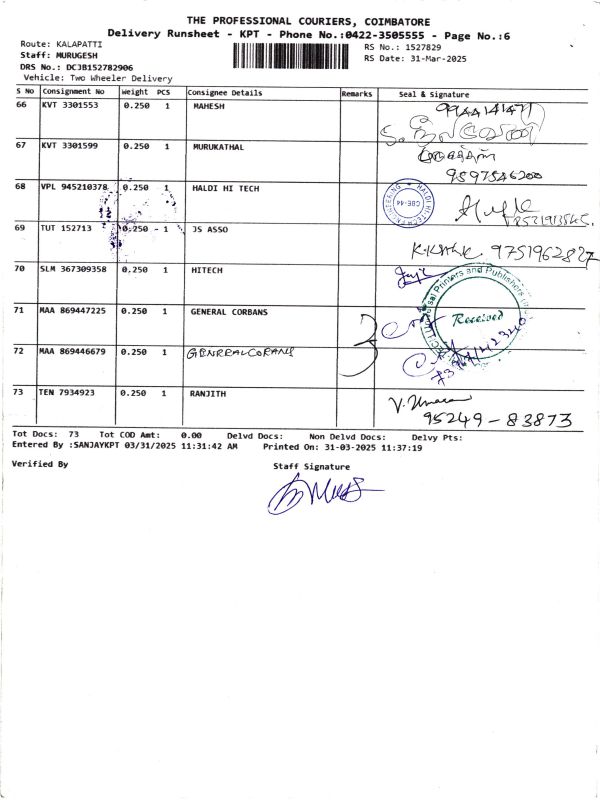 THE PROFESSIONAL COURIERS, COIMBATORE
Delivery Runsheet - KPT - Phone No.:0422-3505555 - Page No.:6
Route: KALAPATTI
RS No.: 1527829
Staff: MURUGESH
RS Date: 31-Mar-2025
DRS No.: DCJB152782906
Vehicle: Two Wheeler Delivery
S No Consignment No Weight PCS Consignee Details Remarks Seal & Signature
66 KVT 3301553 0.250 1 MAHESH
67 KVT 3301599 0.250 1 MURUKATHAL
9597546200
68 VPL 945210378 0.250 1 HALDI HI TECH
69 TUT 152713 0.250 - 1 JS ASSO
9751962827
70 SLM 367309358 0.250 1 HITECH
71 MAA 869447225 0.250 1 GENERAL CORBANS
Received
72 MAA 869446679 0.250 1 GENREALCORANS
73 TEN 7934923 0.250 1 RANJITH
95249-83873
Tot Docs: 73 Tot COD Amt: 0.00 Delvd Docs: Non Delvd Docs: Delvy Pts:
Entered By :SANJAYKPT 03/31/2025 11:31:42 AM Printed On: 31-03-2025 11:37:19
Verified By
Staff Signature